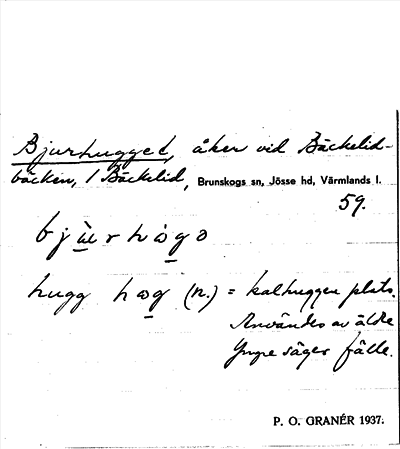 Bjurhugget, åker vid Bäckelid-
bäcken, 1 Bäckelid, Brunskogs sn, Jösse hd, Värmlands l.
59.
bjùrhògə
hugg hog (n.) = kalhuggen plats.
Användes av äldre
Yngre säger fälle.
P. O. GRANÉR 1937.